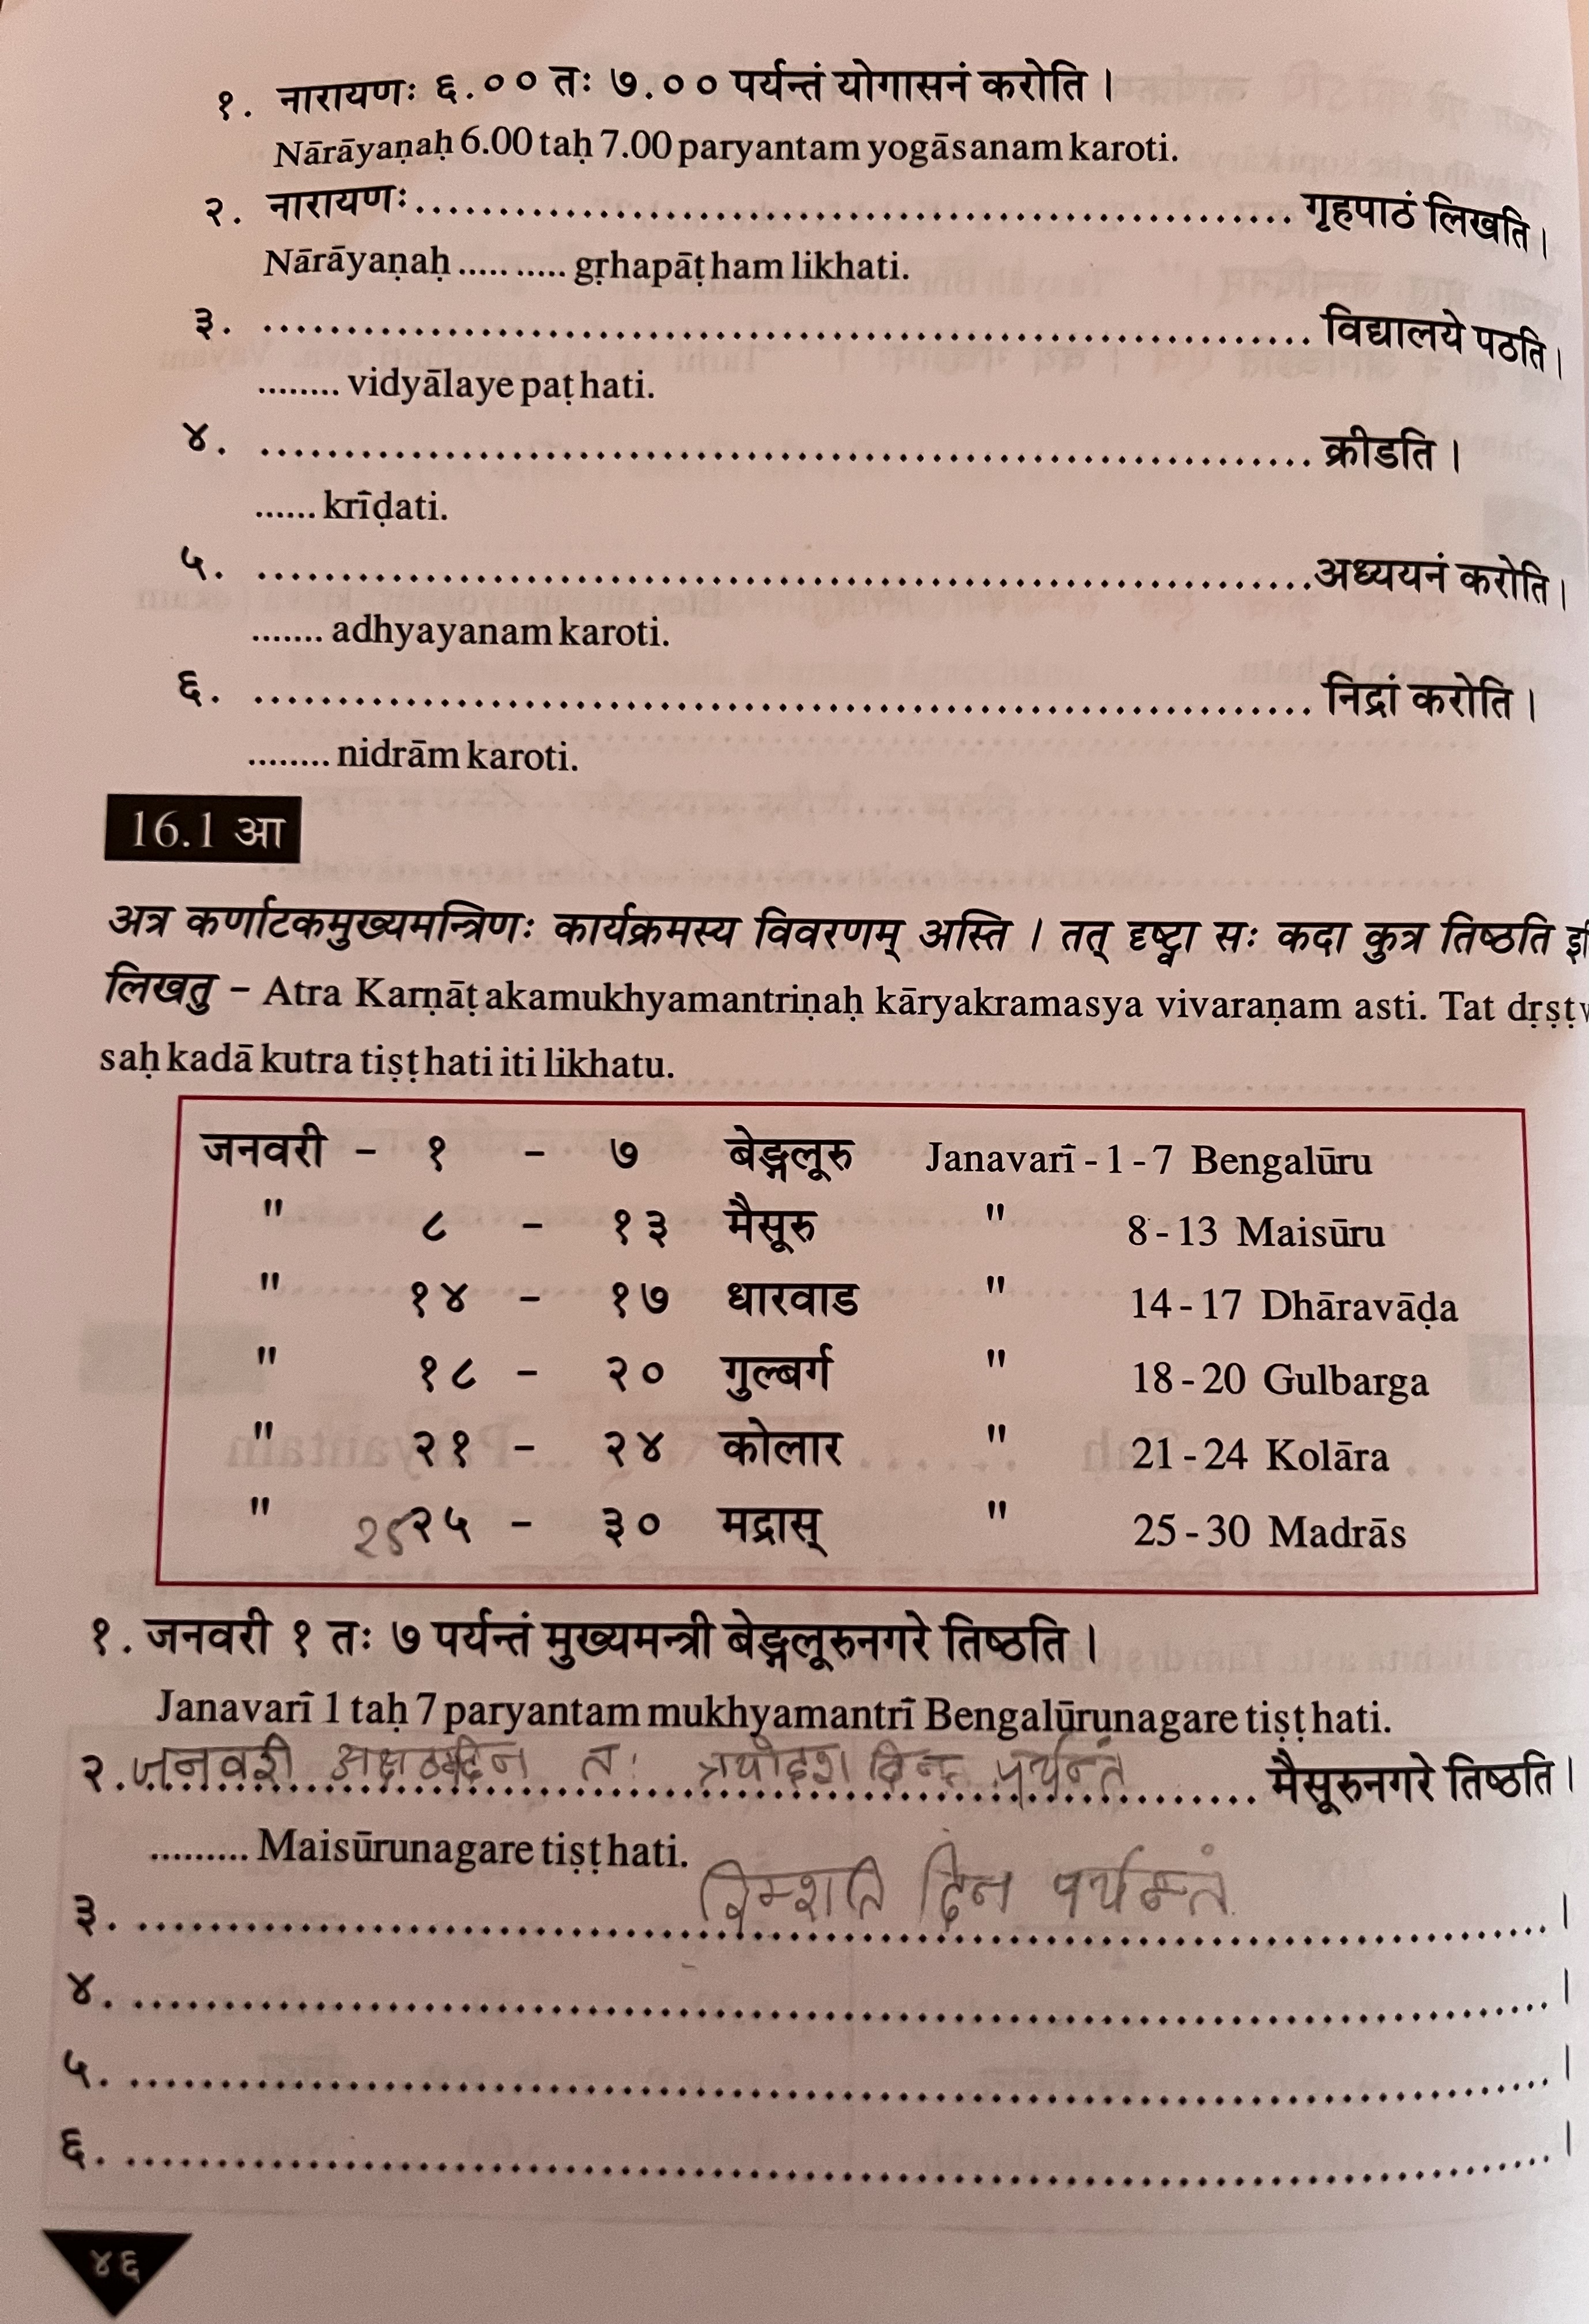 १. नारायणः ६.०० तः ७.०० पर्यन्तं योगासनं करोति ।
Nārāyaṇaḥ 6.00 taḥ 7.00 paryantam yogāsanam karoti.
२. नारायणः ........................................ गृहपाठं लिखति ।
Nārāyaṇaḥ ..... ..... gṛhapāṭham likhati.
३. ........................................ विद्यालये पठति ।
........ vidyālaye paṭhati.
४. ........................................ क्रीडति ।
...... krīḍati.
५. ........................................ अध्ययनं करोति ।
....... adhyayanam karoti.
६. ........................................ निद्रां करोति ।
........ nidrām karoti.
16.1 आ
अत्र कर्णाटकमुख्यमन्त्रिणः कार्यक्रमस्य विवरणम् अस्ति । तत् दृष्ट्वा सः कदा कुत्र तिष्ठति
लिखतु – Atra Karṇāṭakamukhyamantriṇaḥ kāryakramasya vivaraṇam asti. Tat
saḥ kadā kutra tiṣṭhati iti likhatu.
जनवरी - १ - ७ बेङ्गलूरु Janavarī - 1 - 7 Bengalūru
" ८ - १३ मैसूरु " 8 - 13 Maisūru
" १४ - १७ धारवाड " 14 - 17 Dhāravāḍa
" १८ - २० गुल्बर्ग " 18 - 20 Gulbarga
" २१ - २४ कोलार " 21 - 24 Kolāra
" २५ - ३० मद्रास् " 25 - 30 Madrās
१. जनवरी १ तः ७ पर्यन्तं मुख्यमन्त्री बेङ्गलूरुनगरे तिष्ठति ।
Janavarī 1 taḥ 7 paryantam mukhyamantrī Bengalūrunagare tiṣṭhati.
२. जनवरी तः त्रयोदश दिन पर्यन्तं मैसूरुनगरे तिष्ठति ।
......... Maisūrunagare tiṣṭhati.
३. दिन पर्यन्तं ।
४. ........................................ ।
५. ........................................ ।
६. ........................................ ।
४६